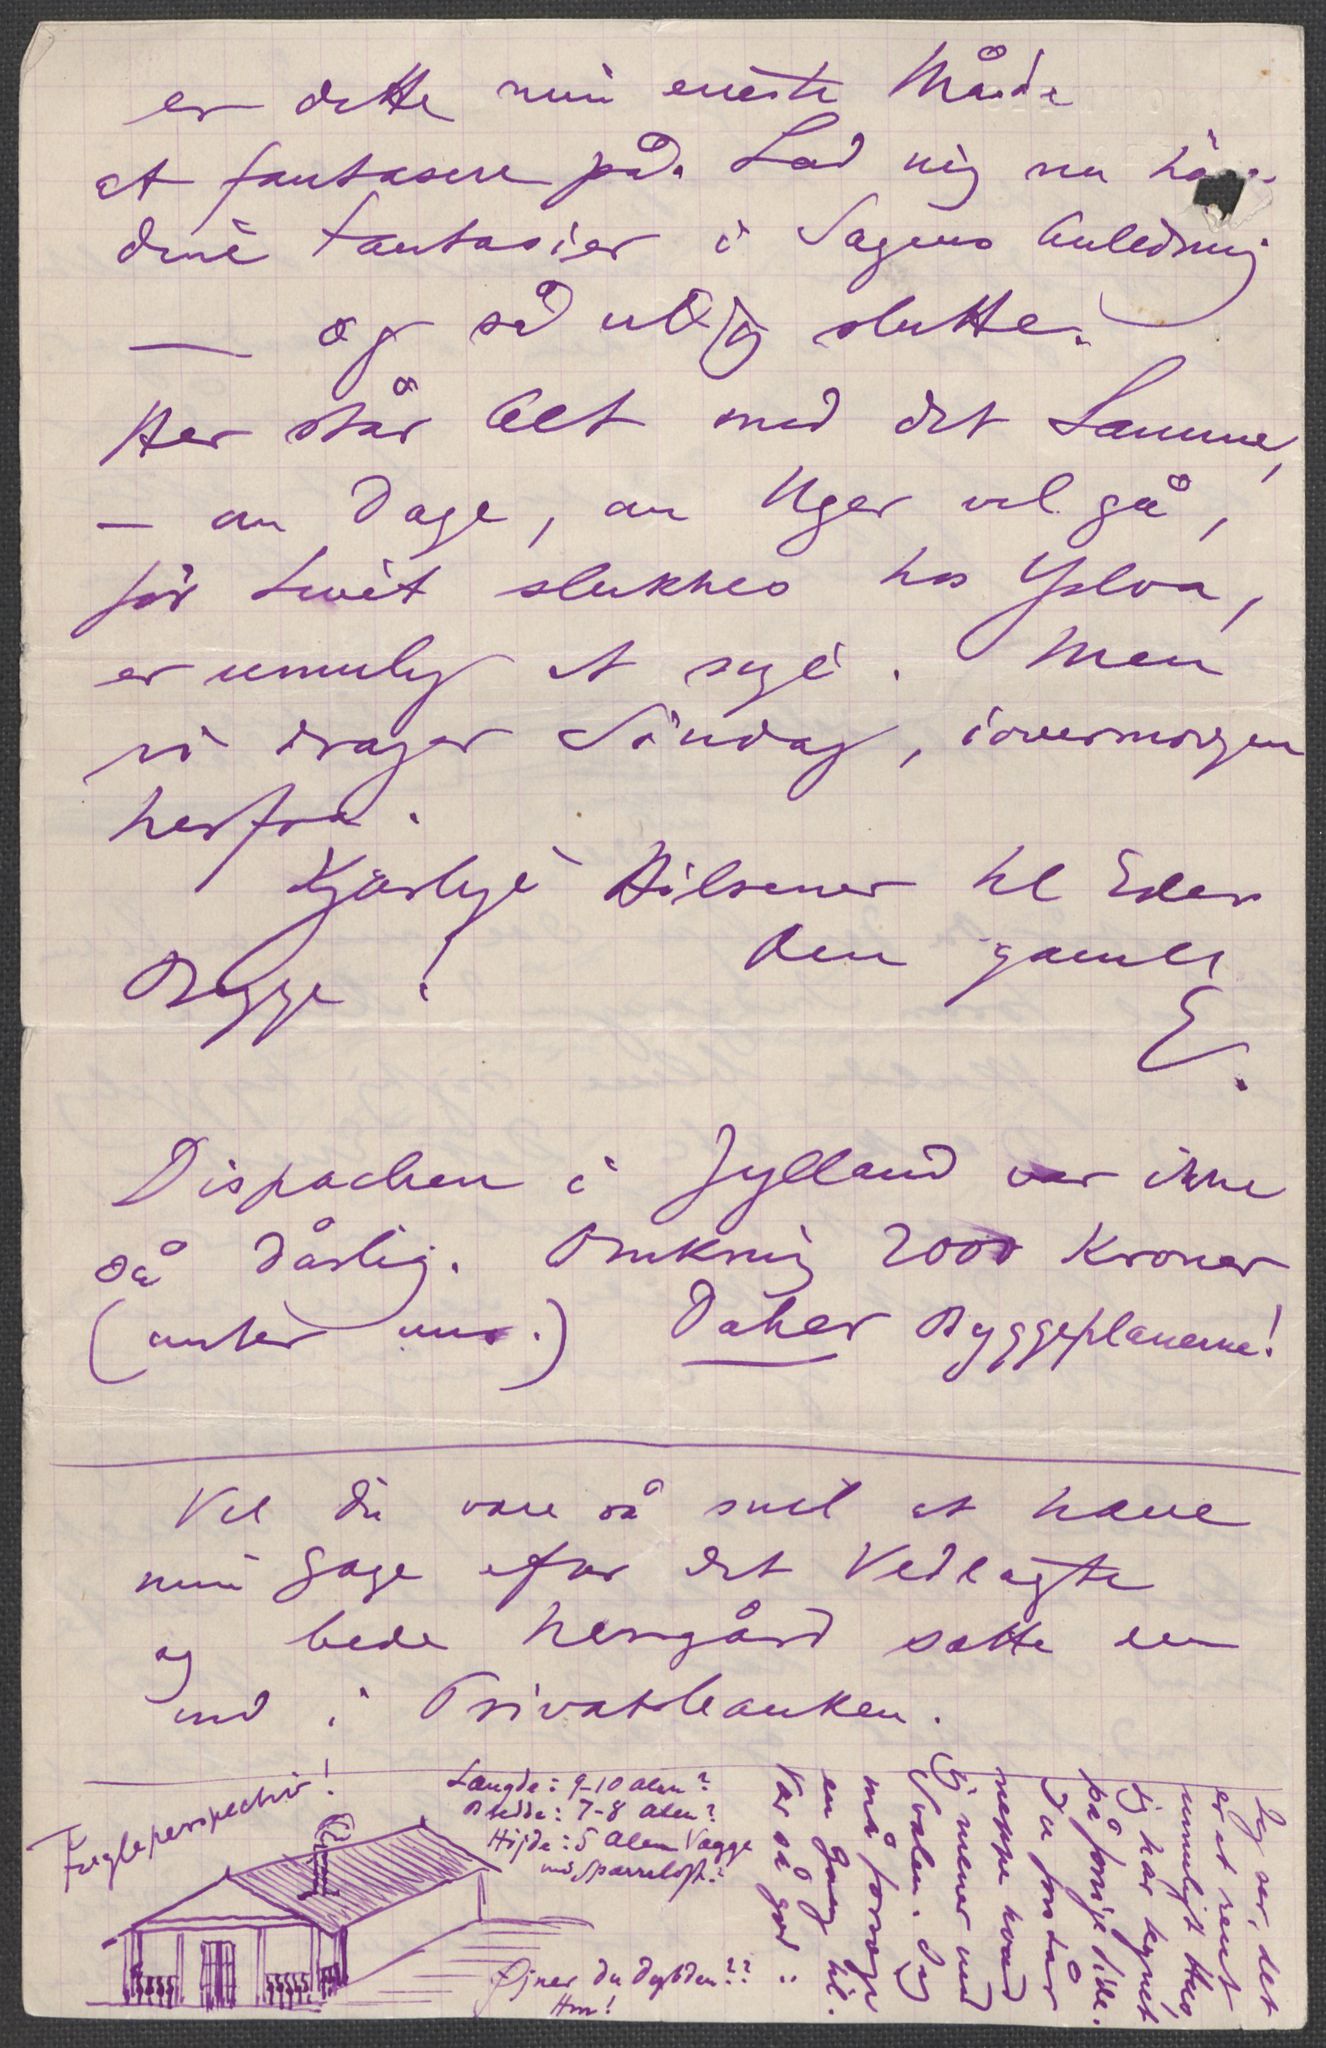 er dette min eneste Måde
at fantasere på. Lad mig nu hö
dine Fantasier i Sagens Anledning
— og så vil jeg slutte.
Her står Alt med det Samme,
— om Dage, om Uger vil gå,
för Livet slukkes hos Ylva,
er umulig at sige. Men
vi drager Söndag, iovermorgen
herfra.
Kjærlige Hilsener til Eder
Begge! Den gamle
E.
Dispachen i Jylland var ikke
så dårlig. Omkring 2000 Kroner
(unter uns.) Daher Byggeplanerne!
Vil du være så snil at hæve
min Gage efter det Vedlagte
og bede Herrgård sætte den
ind i Privatbanken.
Fugleperspektiv!
Længde: 9-10 Alen?
Bredde: 7-8 Alen?
Höjde: 5 Alen Vægge
med Sparreloft?
Øjner du Dybden??
Hm!
Jeg ser, det
er et rent
umuligt Hus
jeg har tegnet
på forrige Side.
Du forstår
neppe hvad
jeg mener med
Svalen. Jeg
må forsöge
en Gang til.
Vær så god